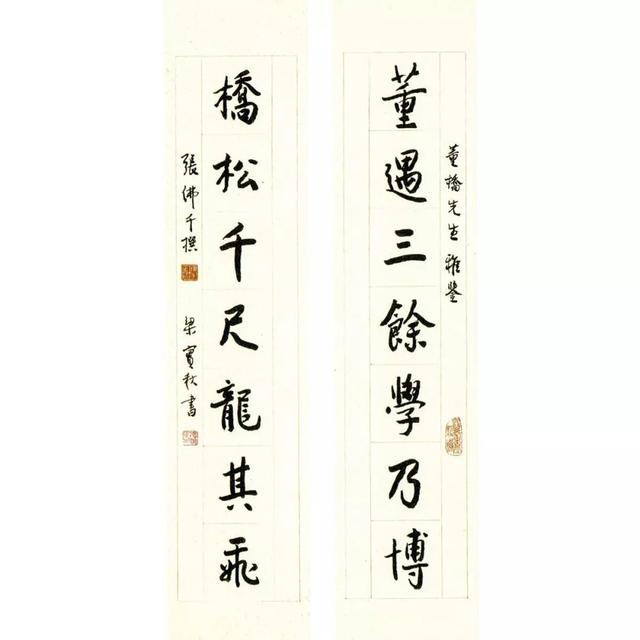 董橋先生雅鑒
董遇三餘學乃博
橋松千尺龍其飛
張佛千撰 梁實秋書